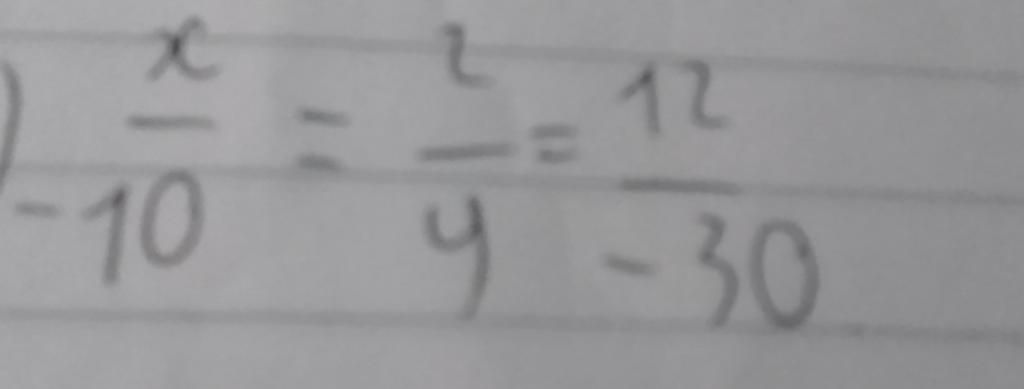 ) x/-10 = 2/y = 12/-30